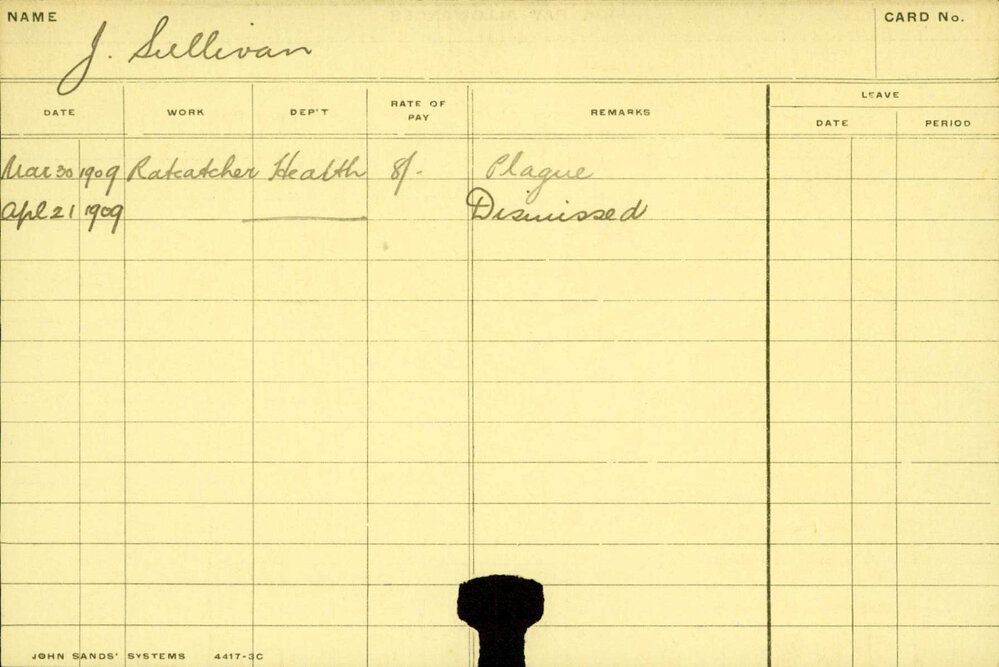 NAME
CARD No.
J. Sullivan
DATE WORK DEP'T RATE OF PAY REMARKS LEAVE
DATE PERIOD
Mar 30 1909 Ratcatcher Health 8/- Plague
Apl 21 1909 Dismissed
JOHN SANDS' SYSTEMS 4417-3C